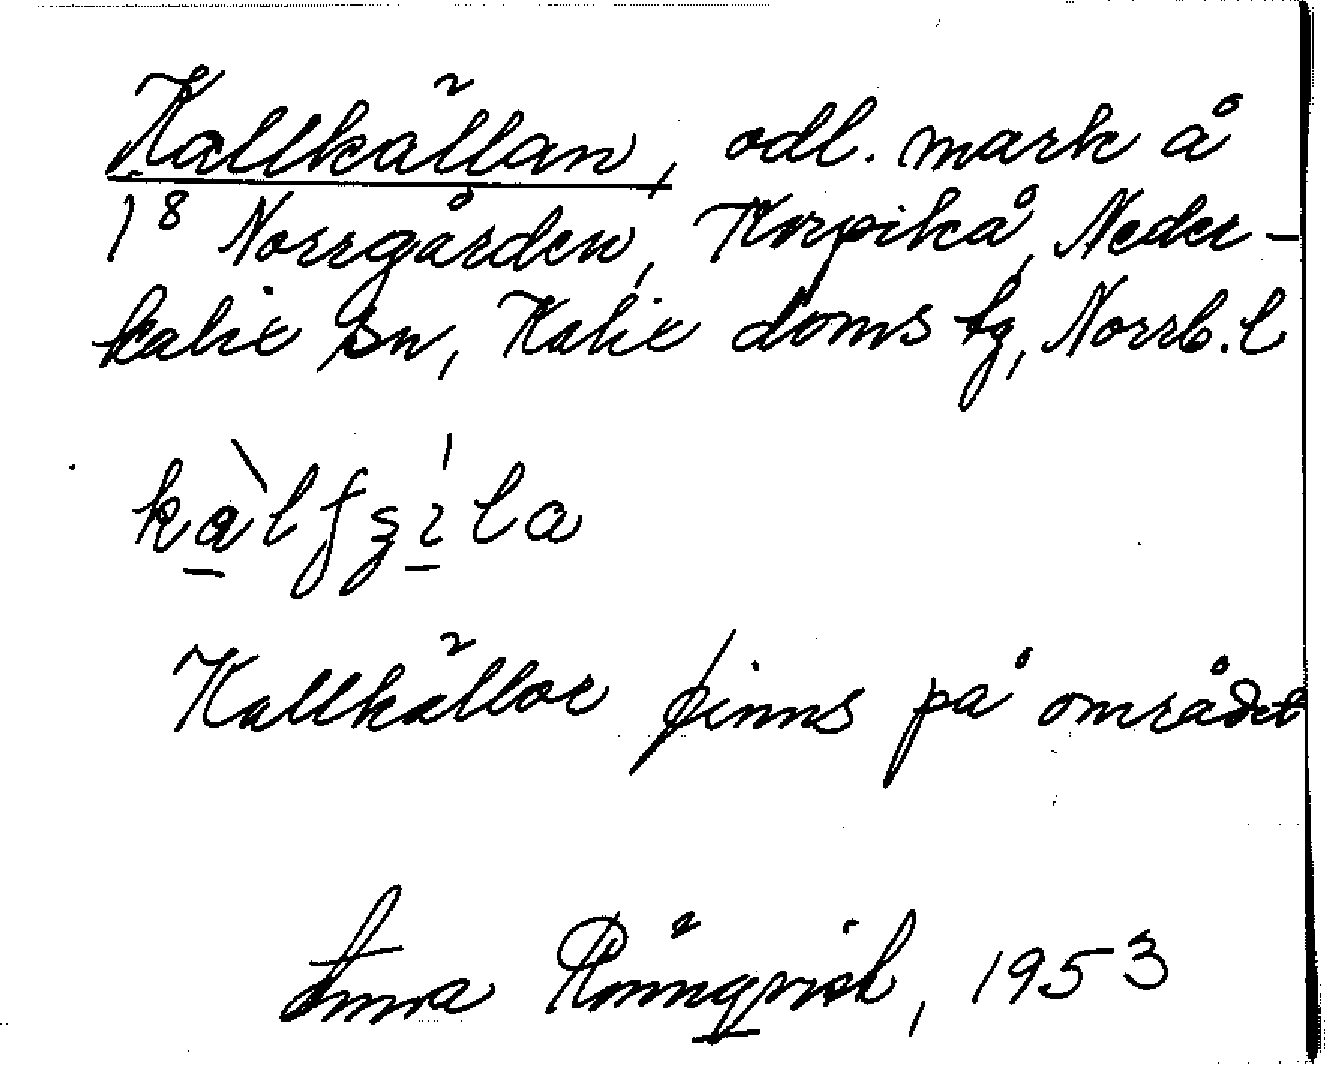 Kallkällan, odl. mark å
1⁸ Norrgården, Korpikå, Neder-
kalix sn, Kalix doms tg, Norrb. l
Kallkällor finns på området
Anna Rönnqvist, 1953